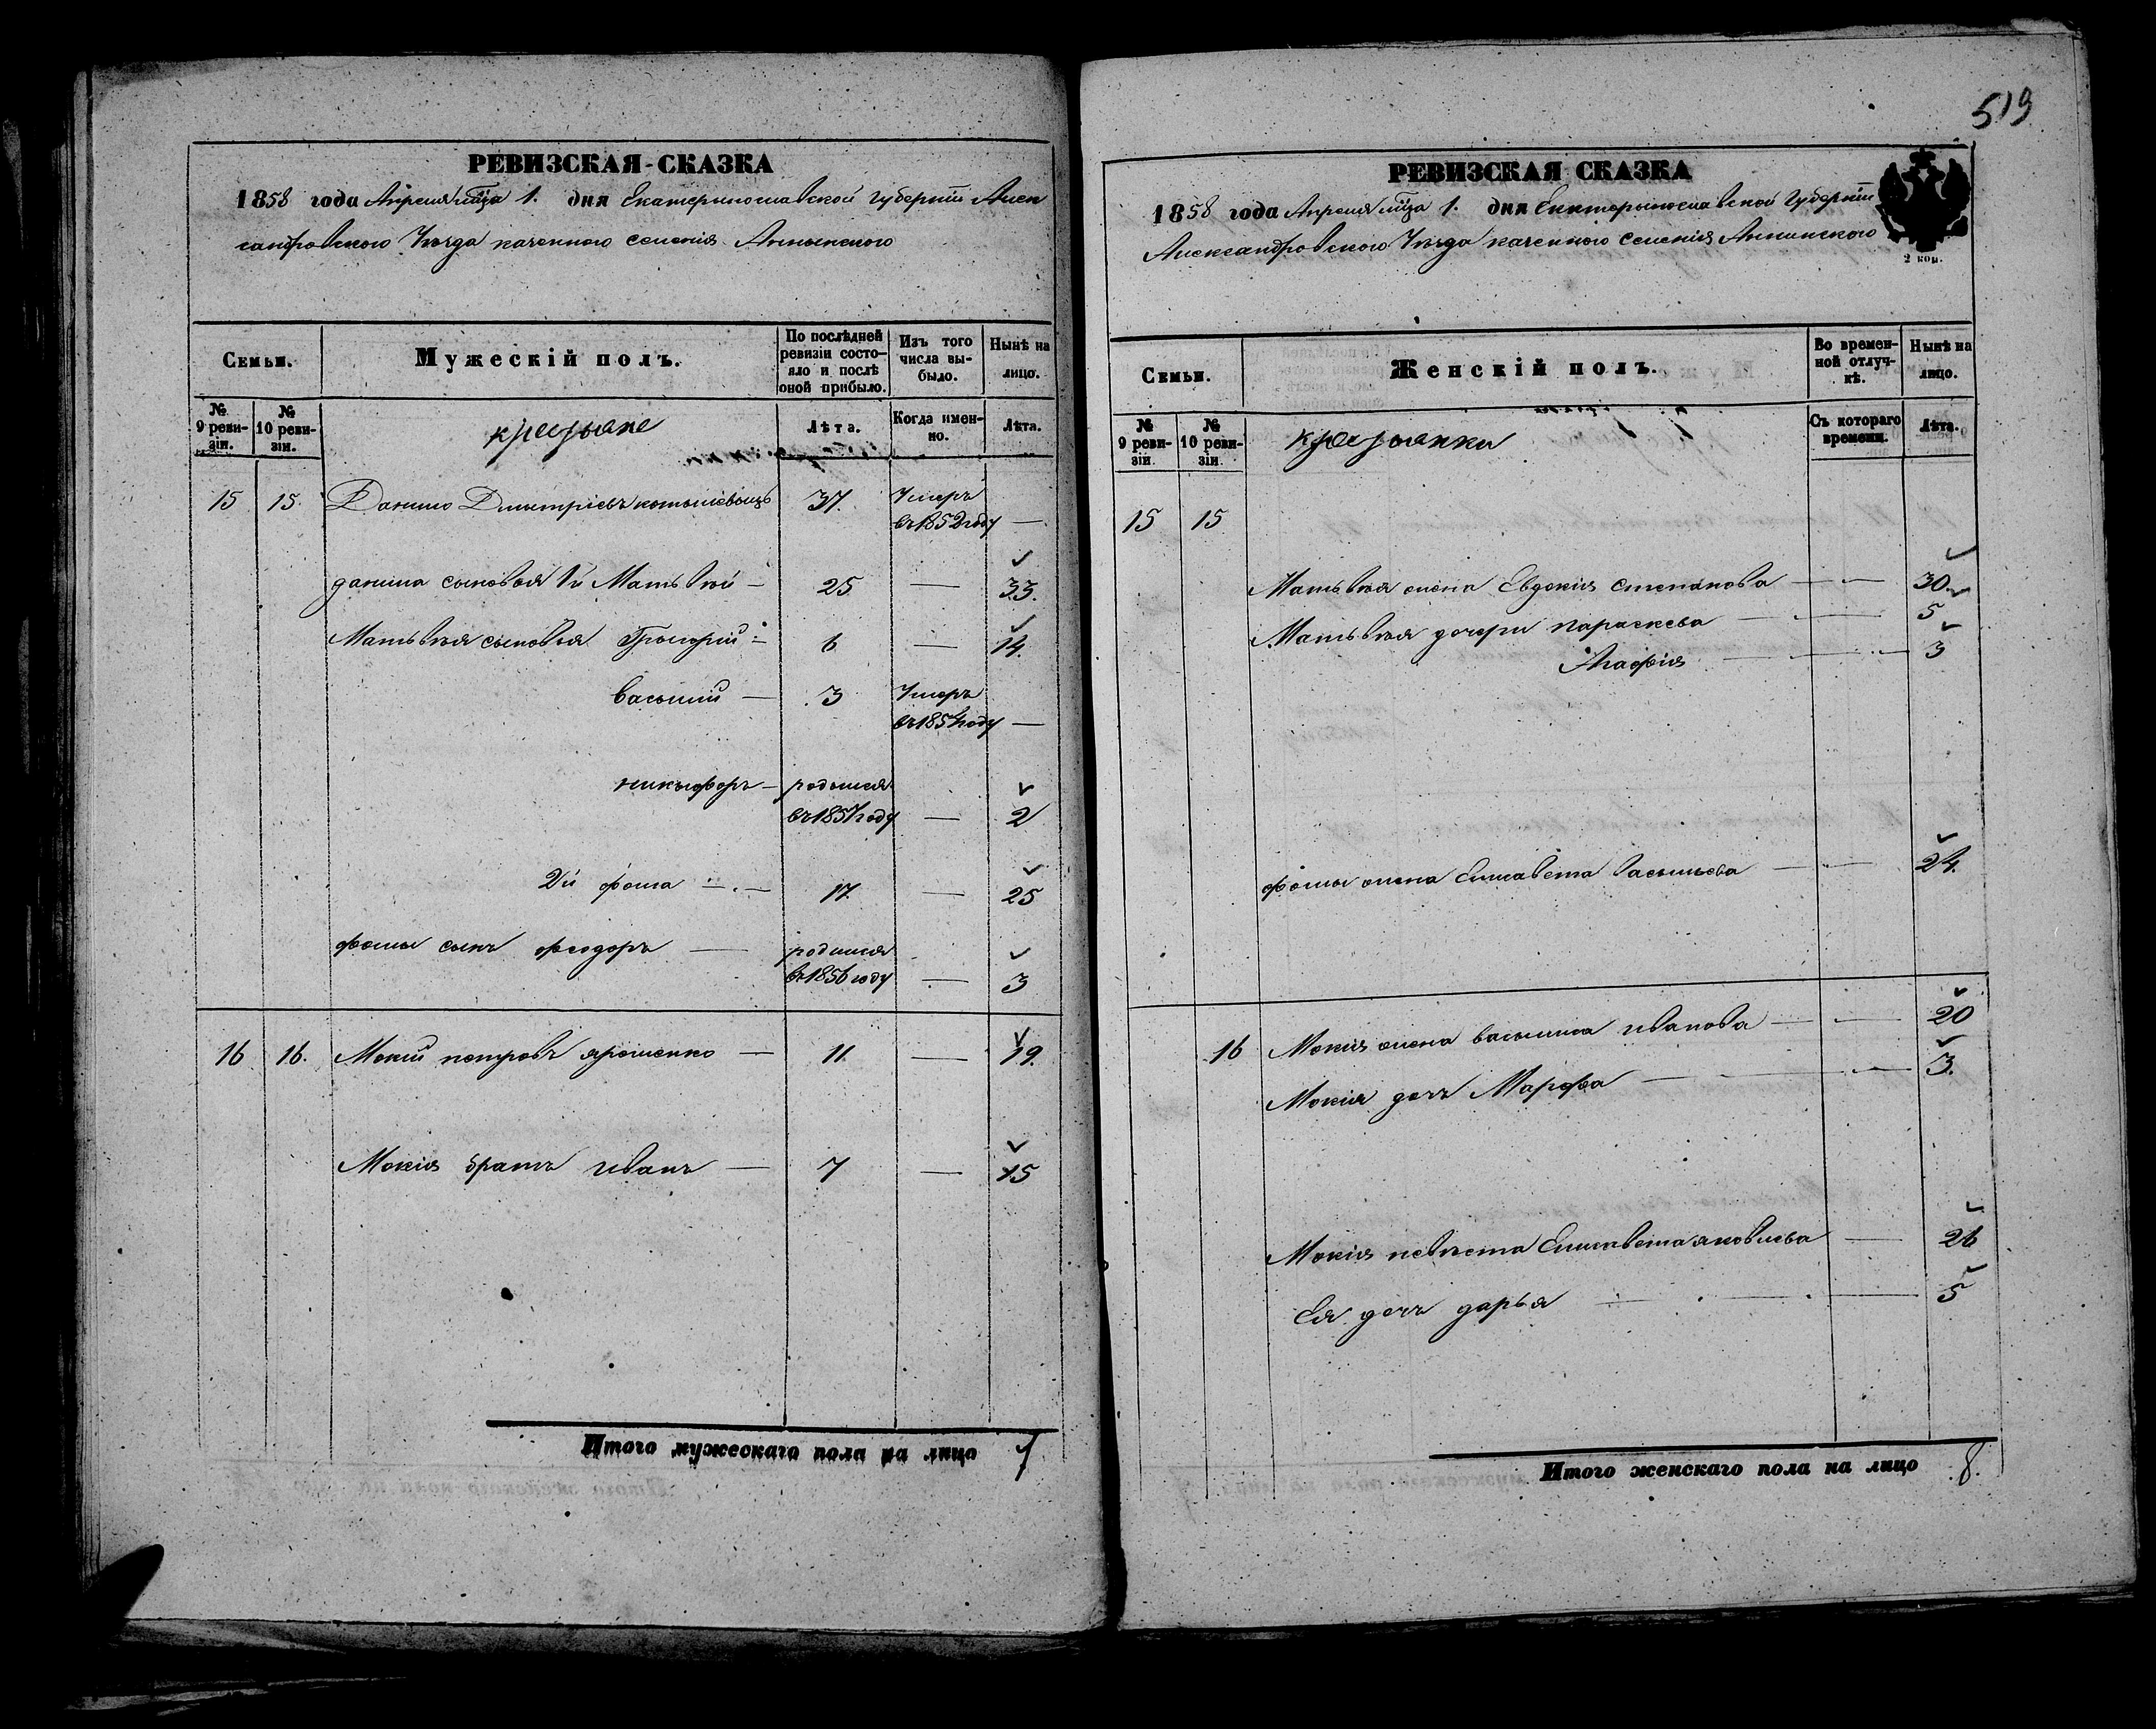 519
РЕВИЗСКАЯ-СКАЗКА
1858 года Апреля мѣца 1. дня Екатеринославской губерніи Алек
сандровского Уѣзда казенного селенія Аннынского
Семьи.
Мужескій полъ.
По послѣдней ревизіи состо-
яло и послѣ
оной прибыло.
Изъ того
числа вы-
было.
Нынѣ на
лицо.
№
9 реви-
зіи.
№
10 реви-
зіи.
Лѣта.
Когда имен-
но.
Лѣта.
15 15. Данило Дмытріевъ 37. Умеръ
въ 1852 году —
данила сыновья 1й Матьвѣй — 25. — 33.
Матьвѣя сыновья Грыгорій — 6 — 14.
василій — 3 Умеръ
въ 1857 году —
никыфоръ — родылся
въ 1857 году — 2
2й фома — 17. — 25
фомы сынъ феодоръ — родился
въ 1856 году — 3
16 16. Мокій петровъ ярошенко — 11. — 19.
Мокія братъ иванъ — 7 — 15
Итого мужескаго пола на лицо 7
РЕВИЗСКАЯ СКАЗКА
1858 года Апреля мѣца 1. дня Екатерынославской Губерніи
Александровского Уѣзда казенного селенія Аннинского
2 коп.
Семьи.
Женскій полъ.
Во времен-
ной отлуч-
кѣ.
Нынѣ на
лицо.
№
9 реви-
зіи.
№
10 реви-
зіи.
Съ котораго
времени.
Лѣта.
15 15
Матьвѣя жена Евдокія степанова — — 30.
Матьвѣя дочери параскева — — 5
Агафія — — 3
фомы жена Елисавета васыльева — — 24.
16 Мокія жена васылиса иванова — — 20
Мокія дочъ Марфа — — 3.
Мокія невѣста Елисавета яковлева — 26
Ея дочъ дарья — — 5
Итого женскаго пола на лицо 8.